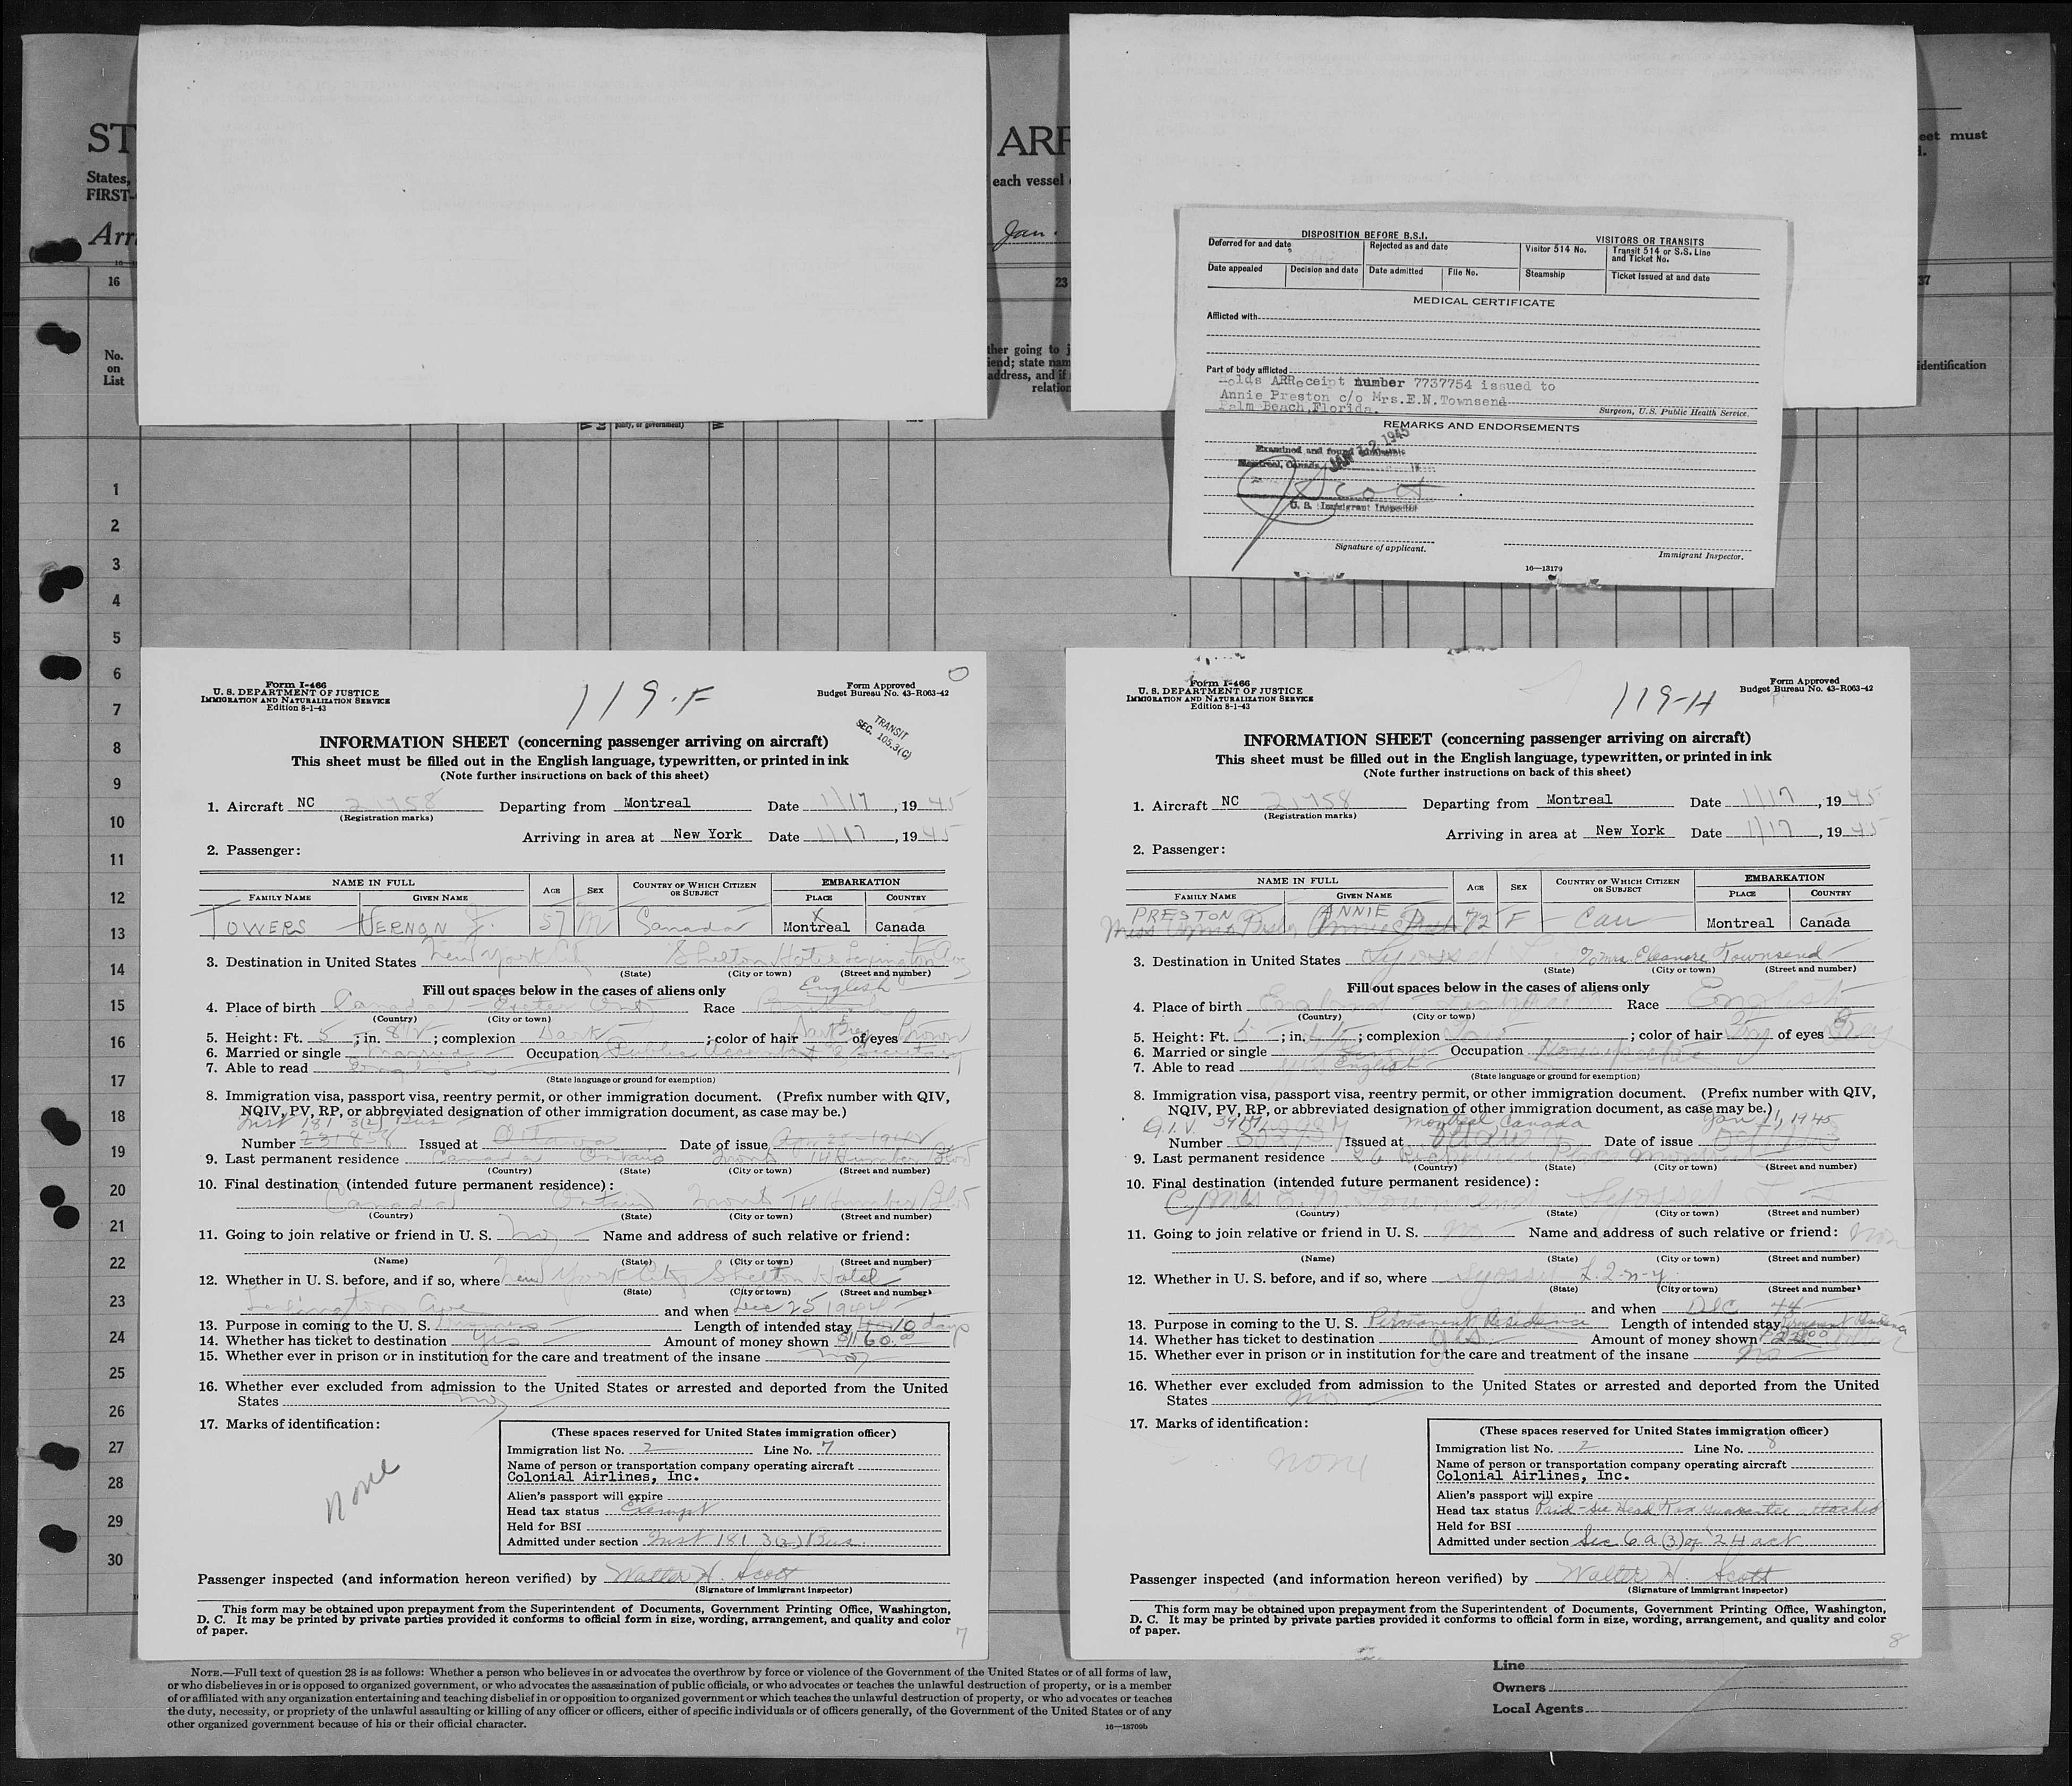 ST
ARR
eet must
States,
FIRST-
each vessel
Arr
Jan.
16
23
37
No.
on
List
ther going to j
iend; state nam
address, and if
relation
identification
party, or government)
1
2
3
4
5
6
7
8
9
10
11
12
13
14
15
16
17
18
19
20
21
22
23
24
25
26
27
28
29
30
DISPOSITION BEFORE B.S.I.
VISITORS OR TRANSITS
Deferred for and date
Rejected as and date
Visitor 514 No.
Transit 514 or S.S. Line and Ticket No.
Date appealed
Decision and date
Date admitted
File No.
Steamship
Ticket issued at and date
MEDICAL CERTIFICATE
Afflicted with
Part of body afflicted
Holds ARReceipt number 7737754 issued to
Annie Preston c/o Mrs.E.N.Townsend
Palm Beach,Florida.
Surgeon, U.S. Public Health Service.
REMARKS AND ENDORSEMENTS
Examined and found admissible
Montreal, Canada, JAN 12 1945
Scott
U. S. Immigrant Inspector
Signature of applicant.
Immigrant Inspector.
16—13179
Form I-466
U. S. DEPARTMENT OF JUSTICE
IMMIGRATION AND NATURALIZATION SERVICE
Edition 8-1-43
119-F
Form Approved
Budget Bureau No. 43-R063-42
TRANSIT
SEC. 105.3(C)
INFORMATION SHEET (concerning passenger arriving on aircraft)
This sheet must be filled out in the English language, typewritten, or printed in ink
(Note further instructions on back of this sheet)
1. Aircraft NC 21758 Departing from Montreal Date 1/17, 1945
(Registration marks)
Arriving in area at New York Date 1/17, 1945
2. Passenger:
NAME IN FULL
AGE
SEX
COUNTRY OF WHICH CITIZEN OR SUBJECT
EMBARKATION
FAMILY NAME GIVEN NAME PLACE COUNTRY
TOWERS VERNON J. 57 M Canada Montreal Canada
3. Destination in United States New York City Shelton Hotel Lexington Ave
(State) (City or town) (Street and number)
Fill out spaces below in the cases of aliens only
English
4. Place of birth Canada Exeter Ont Race
(Country) (City or town)
5. Height: Ft. 5; in. 8 1/2; complexion Dark; color of hair of eyes Brown
6. Married or single Married Occupation Public Accountant & Secretary
7. Able to read English
(State language or ground for exemption)
8. Immigration visa, passport visa, reentry permit, or other immigration document. (Prefix number with QIV,
NQIV, PV, RP, or abbreviated designation of other immigration document, as case may be.)
Inst 181 3(2) Bus
Number 231858 Issued at Ottawa Date of issue
9. Last permanent residence Canada Ontario 14 Humber Blvd
(Country) (State) (City or town) (Street and number)
10. Final destination (intended future permanent residence):
Canada Ontario 14 Humber Blvd
(Country) (State) (City or town) (Street and number)
11. Going to join relative or friend in U. S. No Name and address of such relative or friend:
(Name) (State) (City or town) (Street and number)
12. Whether in U. S. before, and if so, where New York City Shelton Hotel
(State) (City or town) (Street and number)
Lexington Ave and when Dec 25 1944
13. Purpose in coming to the U. S. Business Length of intended stay 10 days
14. Whether has ticket to destination Yes Amount of money shown 60.00
15. Whether ever in prison or in institution for the care and treatment of the insane no
16. Whether ever excluded from admission to the United States or arrested and deported from the United
States no
17. Marks of identification:
none
(These spaces reserved for United States immigration officer)
Immigration list No. 2 Line No. 7
Name of person or transportation company operating aircraft
Colonial Airlines, Inc.
Alien's passport will expire
Head tax status Exempt
Held for BSI
Admitted under section Inst 181 3(2) Bus.
Passenger inspected (and information hereon verified) by Walter H. Scott
(Signature of immigrant inspector)
This form may be obtained upon prepayment from the Superintendent of Documents, Government Printing Office, Washington,
D. C. It may be printed by private parties provided it conforms to official form in size, wording, arrangement, and quality and color
of paper.
7
Form I-466
U. S. DEPARTMENT OF JUSTICE
IMMIGRATION AND NATURALIZATION SERVICE
Edition 8-1-43
119-H
Form Approved
Budget Bureau No. 43-R063-42
INFORMATION SHEET (concerning passenger arriving on aircraft)
This sheet must be filled out in the English language, typewritten, or printed in ink
(Note further instructions on back of this sheet)
1. Aircraft NC 21758 Departing from Montreal Date 1/17, 1945
(Registration marks)
Arriving in area at New York Date 1/17, 1945
2. Passenger:
NAME IN FULL
AGE
SEX
COUNTRY OF WHICH CITIZEN OR SUBJECT
EMBARKATION
FAMILY NAME GIVEN NAME PLACE COUNTRY
PRESTON ANNIE
Miss 72 F Can Montreal Canada
3. Destination in United States Syosset c/o Mrs. Eleanore Townsend
(State) (City or town) (Street and number)
Fill out spaces below in the cases of aliens only
4. Place of birth England Race English
(Country) (City or town)
5. Height: Ft. 5; in.; complexion; color of hair Gray of eyes Gray
6. Married or single Single Occupation
7. Able to read yes English
(State language or ground for exemption)
8. Immigration visa, passport visa, reentry permit, or other immigration document. (Prefix number with QIV,
NQIV, PV, RP, or abbreviated designation of other immigration document, as case may be.)
Q.I.V. Montreal Canada Jan 11, 1945
Number Issued at Date of issue
9. Last permanent residence 26 Place Montreal
(Country) (State) (City or town) (Street and number)
10. Final destination (intended future permanent residence):
C/o Mrs E. N. Townsend Syosset L I
(Country) (State) (City or town) (Street and number)
11. Going to join relative or friend in U. S. no Name and address of such relative or friend:
(Name) (State) (City or town) (Street and number)
12. Whether in U. S. before, and if so, where Syosset L.I. N.Y.
(State) (City or town) (Street and number)
and when Dec 44
13. Purpose in coming to the U. S. Permanent Residence Length of intended stay Permanent Residence
14. Whether has ticket to destination yes Amount of money shown
15. Whether ever in prison or in institution for the care and treatment of the insane No
16. Whether ever excluded from admission to the United States or arrested and deported from the United
States no
17. Marks of identification:
none
(These spaces reserved for United States immigration officer)
Immigration list No. 2 Line No. 8
Name of person or transportation company operating aircraft
Colonial Airlines, Inc.
Alien's passport will expire
Head tax status Paid - see Head Tax guarantee attached
Held for BSI
Admitted under section Sec 6 a (3) of '24 act
Passenger inspected (and information hereon verified) by Walter H. Scott
(Signature of immigrant inspector)
This form may be obtained upon prepayment from the Superintendent of Documents, Government Printing Office, Washington,
D. C. It may be printed by private parties provided it conforms to official form in size, wording, arrangement, and quality and color
of paper.
8
NOTE.—Full text of question 28 is as follows: Whether a person who believes in or advocates the overthrow by force or violence of the Government of the United States or of all forms of law,
or who disbelieves in or is opposed to organized government, or who advocates the assassination of public officials, or who advocates or teaches the unlawful destruction of property, or is a member
of or affiliated with any organization entertaining and teaching disbelief in or opposition to organized government or which teaches the unlawful destruction of property, or who advocates or teaches
the duty, necessity, or propriety of the unlawful assaulting or killing of any officer or officers, either of specific individuals or of officers generally, of the Government of the United States or of any
other organized government because of his or their official character.
16—18709b
Line
Owners
Local Agents